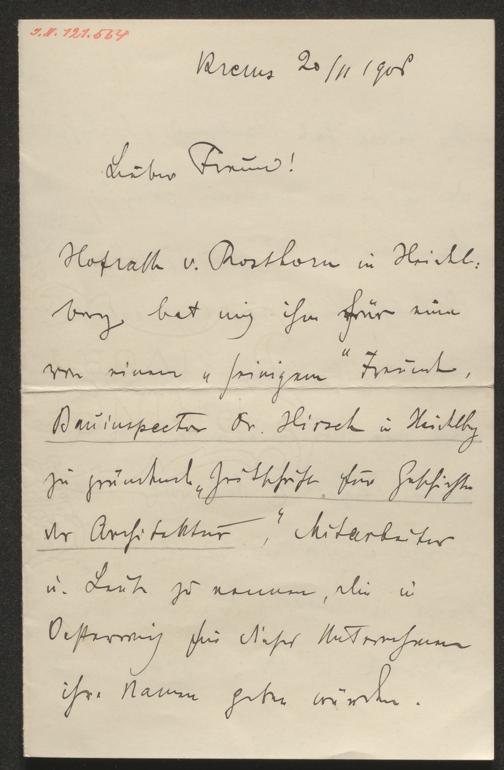 J.N. 121.564
Krems 20/II 1908
Lieber Freund!
Hofrath v. Rosthorn in Heidel:
berg bat mich ihm für eine
von einem „seinigem" Freunde,
Bauinspector Dr. Hirsch in Heidelbg
zu gründende „Zeitschrift für Geschichte
der Architektur", Mitarbeiter
u. Leute zu nennen, die in
Oesterreich für dieses Unternehmen
ihre Namen geben würden.